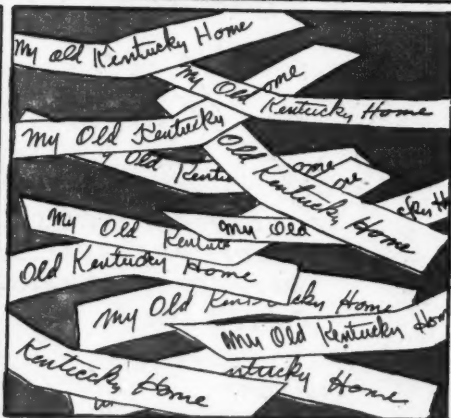 My Old Kentucky Home
My Old Kentucky Home
ome
My Old Kentucky
My Old Kentu
ome
Old Kentucky Home
me
cky H
My Old Kentuc
My Old
Old Kentucky Home
My Old Ken
cky Home
My Old Kentucky Hom
Kentucky Home
ntucky Home